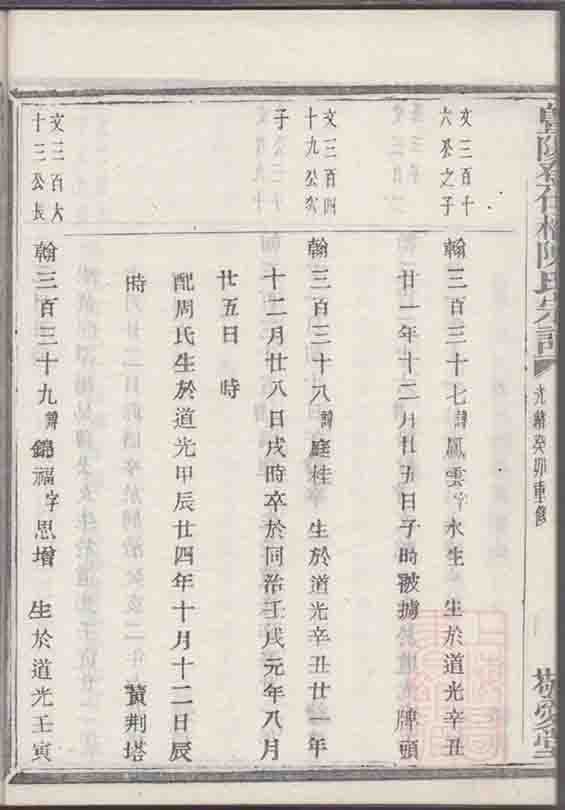 陳氏宗譜
光緒癸卯重修
敬愛堂
文三百十
六公之子
翰三百三十七諱鳳雲字永生 生於道光辛丑
廿一年十二月廿五日子時被擄 牌頭
文三百四
十九公次
子
翰三百三十八諱庭桂 生於道光辛丑廿一年
十二月廿八日戌時卒於同治壬戌元年八月
廿五日 時
配周氏生於道光甲辰廿四年十月十二日辰
時 黃荆塔
文三百六
十三公長
翰三百三十九諱錦福字思增 生於道光壬寅